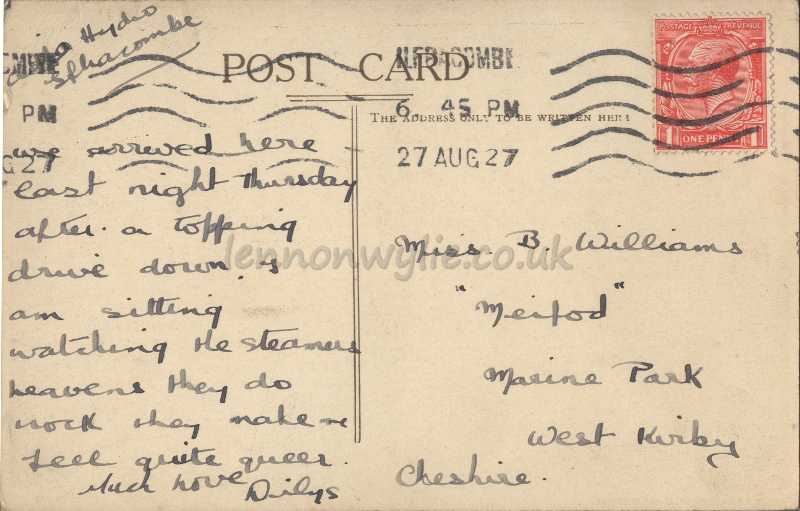 Hydro
Ilfracombe
POST CARD
ILFRACOMBE
6 45 PM
27 AUG 27
PM
G 27
POSTAGE REVENUE
1 ONE PENNY 1
THE ADDRESS ONLY TO BE WRITTEN HERE
we arrived here
last night Thursday
after a topping
drive down. I
am sitting
watching the steamers
heavens they do
rock they make me
feel quite queer.
Much love
Dilys
Miss B. Williams
"Meifod"
Marine Park
West Kirby
Cheshire.
lennonwylie.co.uk